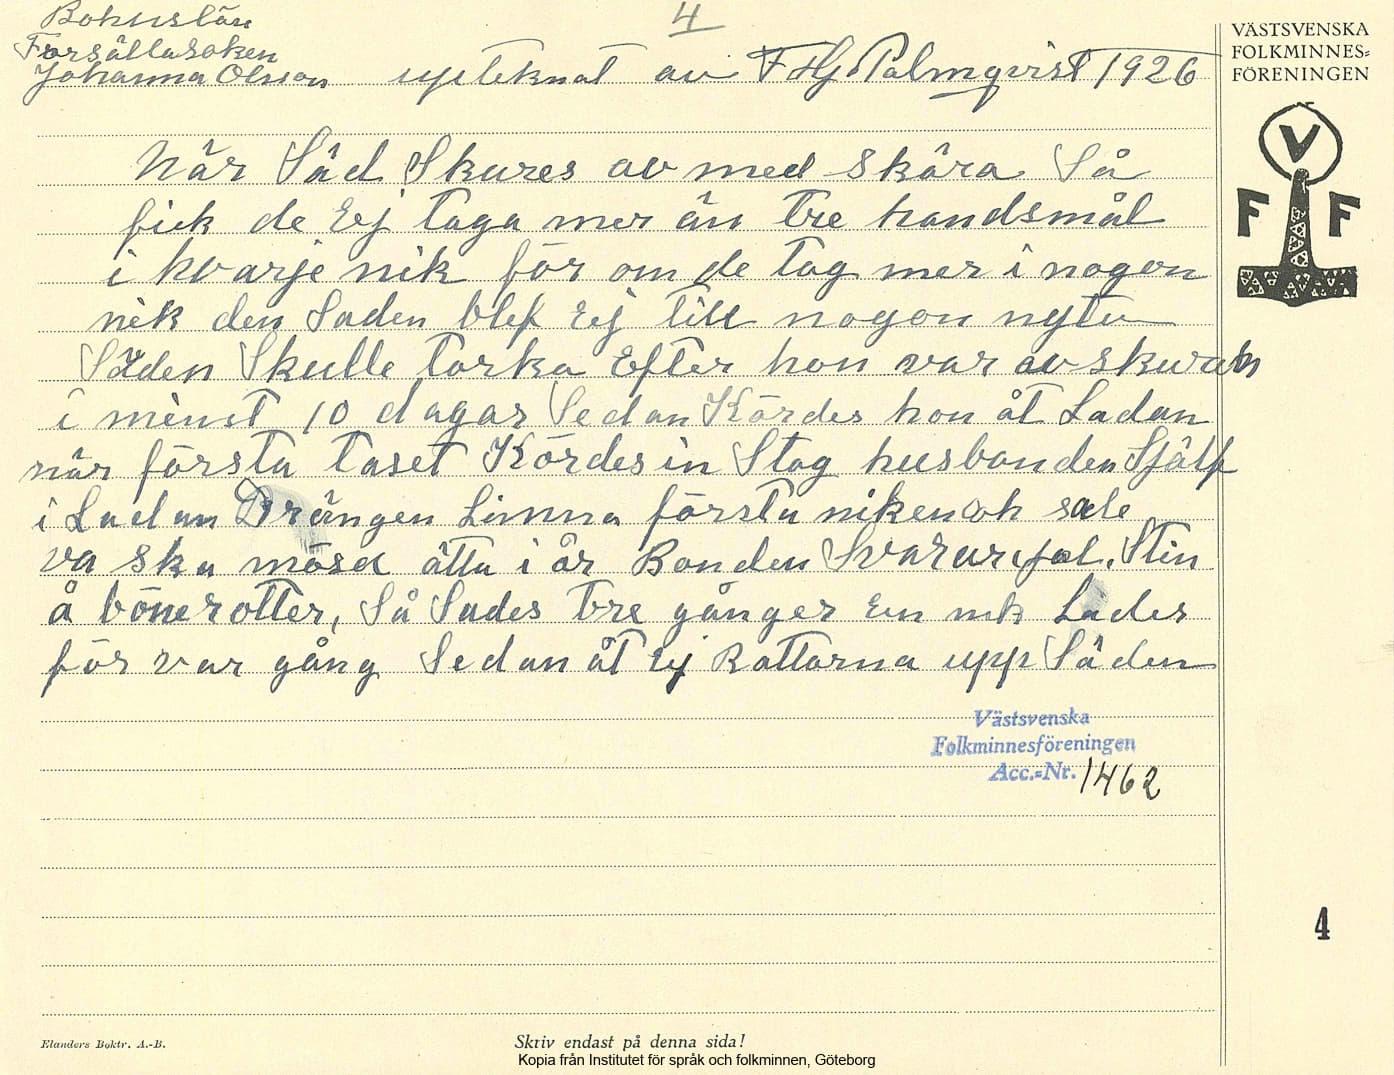 4
Bohuslän
Forsällasoken
Johanna Olsson upteknat av F Hj. Palmqvist 1926
VÄSTSVENSKA
FOLKMINNES=
FÖRENINGEN
V
F F
När Säd Skures av med skära Så
fick de Ej taga mer än tre handsmål
i hvarje nik för om de tog mer i nogon
nik den Saden blef Eij till nogon nytu
Säden Skulle torka Efter hon var avskuren
i minst 10 dagar Sedan Kördes hon åt Ladan
när första laset Kördes in Stog husbonden Själf
i Ladan Drängen Limna första niken och sade
va ska mösa ätta i år Bonden Svarar jol. Stin
å bönerötter, Så Sades tre gånger En nik Lades
för var gång Sedan åt Ej Råttorna upp Säden
Västsvenska
Folkminnesföreningen
Acc.=Nr. 1462
4
Elanders Boktr. A.-B.
Skriv endast på denna sida!
Kopia från Institutet för språk och folkminnen, Göteborg